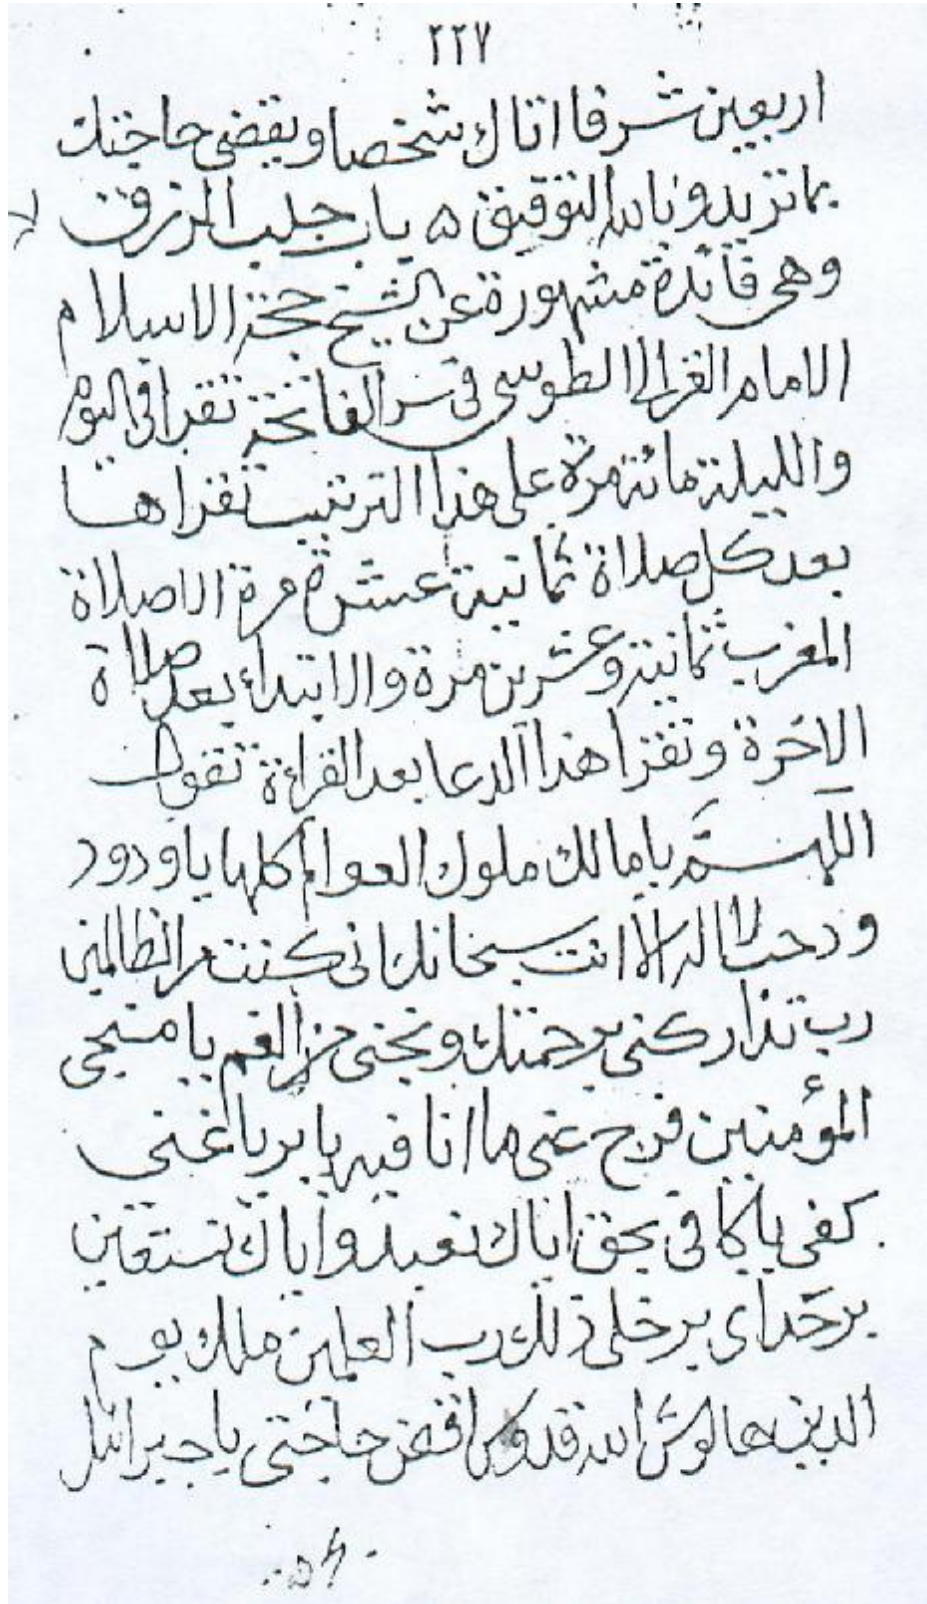 ٢٢٧
اربعين شرفا اتاك شخصا ويقضى حاجتك
بما تريد وبالله التوفيق ٥ باب جلب الرزق
وهى فائدة مشهورة عن الشيخ حجة الاسلام
الامام الغزالى الطوسى فى سر الفاتحة تقرا فى اليوم
والليلة مائة مرة على هذا الترتيب تقراها
بعد كل صلاة ثمانية عشرة مرة الا صلاة
المغرب ثمانية وعشرين مرة والابتداء بعد صلاة
الاخرة وتقرا هذا الدعا بعد القراءة تقول
اللهم يا مالك ملوك العوالم كلها يا ودود
لا اله الا انت سبحانك انى كنت من الظالمين
رب تداركنى برحمتك ونجنى من الغم يا منجى
المؤمنين فرج عنى ما انا فيه يا بر يا غنى
كفى يا كافى بحق اياك نعبد واياك نستعين
ذلك رب العلمين ملك يوم
الدين الله قدوس اقض حاجتى يا جبرائيل